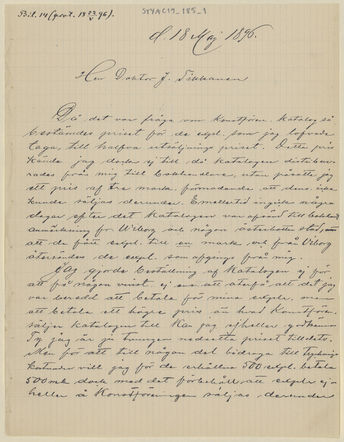 Bil. 14 (prot. 18 23/V 96.)
STYAC19_185_1
d. 18 Maj 1896.
Herr Doktor J. Tikkanen
Då det var fråga om Konstfören. katalog så
bestämdes priset för de expl. som jag lofvade
taga till halfva utsäljnings priset. Detta pris
kände jag dock ej till då katalogen distribue-
rades från mig till bokhandlare, utan påsatte jag
ett pris af tre mark förmodande att den icke
kunde säljas derunder. Emellertid ingick några
dagar efter det katalogen var afsänd till
anmärkning från Wiborg och någon österbottn. stad, om
att de fått expl. till en mark och från Viborg
återsändes de expl. som afgingo från mig.
Jag gjorde beställning af katalogen ej för
att få någon vinst ej ens att återfå allt det jag
var beredd att betala för mina explr, men
att betala ett högre pris än hvad Konstfören.
säljer katalogen till kan jag ej heller godkänna
Ty jag är ju tvungen nedsätta priset tilldels.
Men för att till någon del bidraga till Trycknings
kostnader vill jag för de erhållna 500 expl. betala
500 mk dock med det förbehåll att explr ej
heller å Konstföreningen säljas derunder